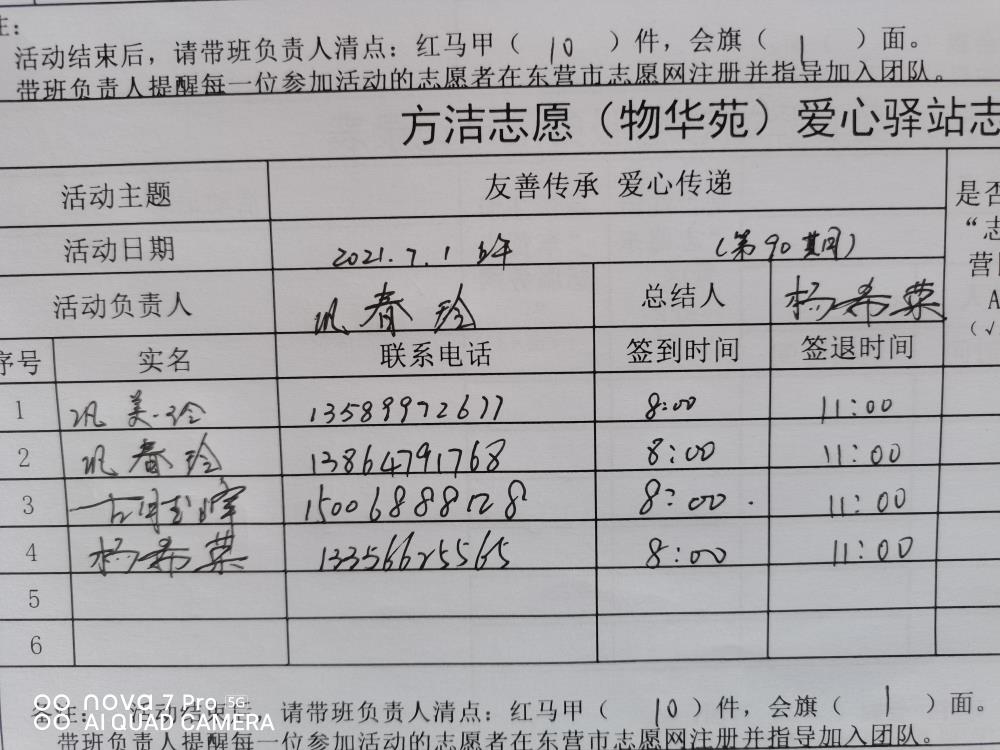 注:
活动结束后，请带班负责人清点：红马甲（ 10 ）件，会旗（ 1 ）面。
带班负责人提醒每一位参加活动的志愿者在东营市志愿网注册并指导加入团队。
方洁志愿（物华苑）爱心驿站志
活动主题 友善传承 爱心传递 是否
活动日期 2021.7.1 (第90期) “志
活动负责人 巩春玲 总结人 杨希荣 营
A
(√
序号 实名 联系电话 签到时间 签退时间
1 巩美玲 13589972677 8:00 11:00
2 巩春玲 13864791768 8:00 11:00
3 15006888128 8:00 11:00
4 杨希荣 13356625565 8:00 11:00
5
6
备注: 活动结束后，请带班负责人清点：红马甲（ 10 ）件，会旗（ 1 ）面。
带班负责人提醒每一位参加活动的志愿者在东营市志愿网注册并指导加入团队。
nova 7 Pro 5G
AI QUAD CAMERA